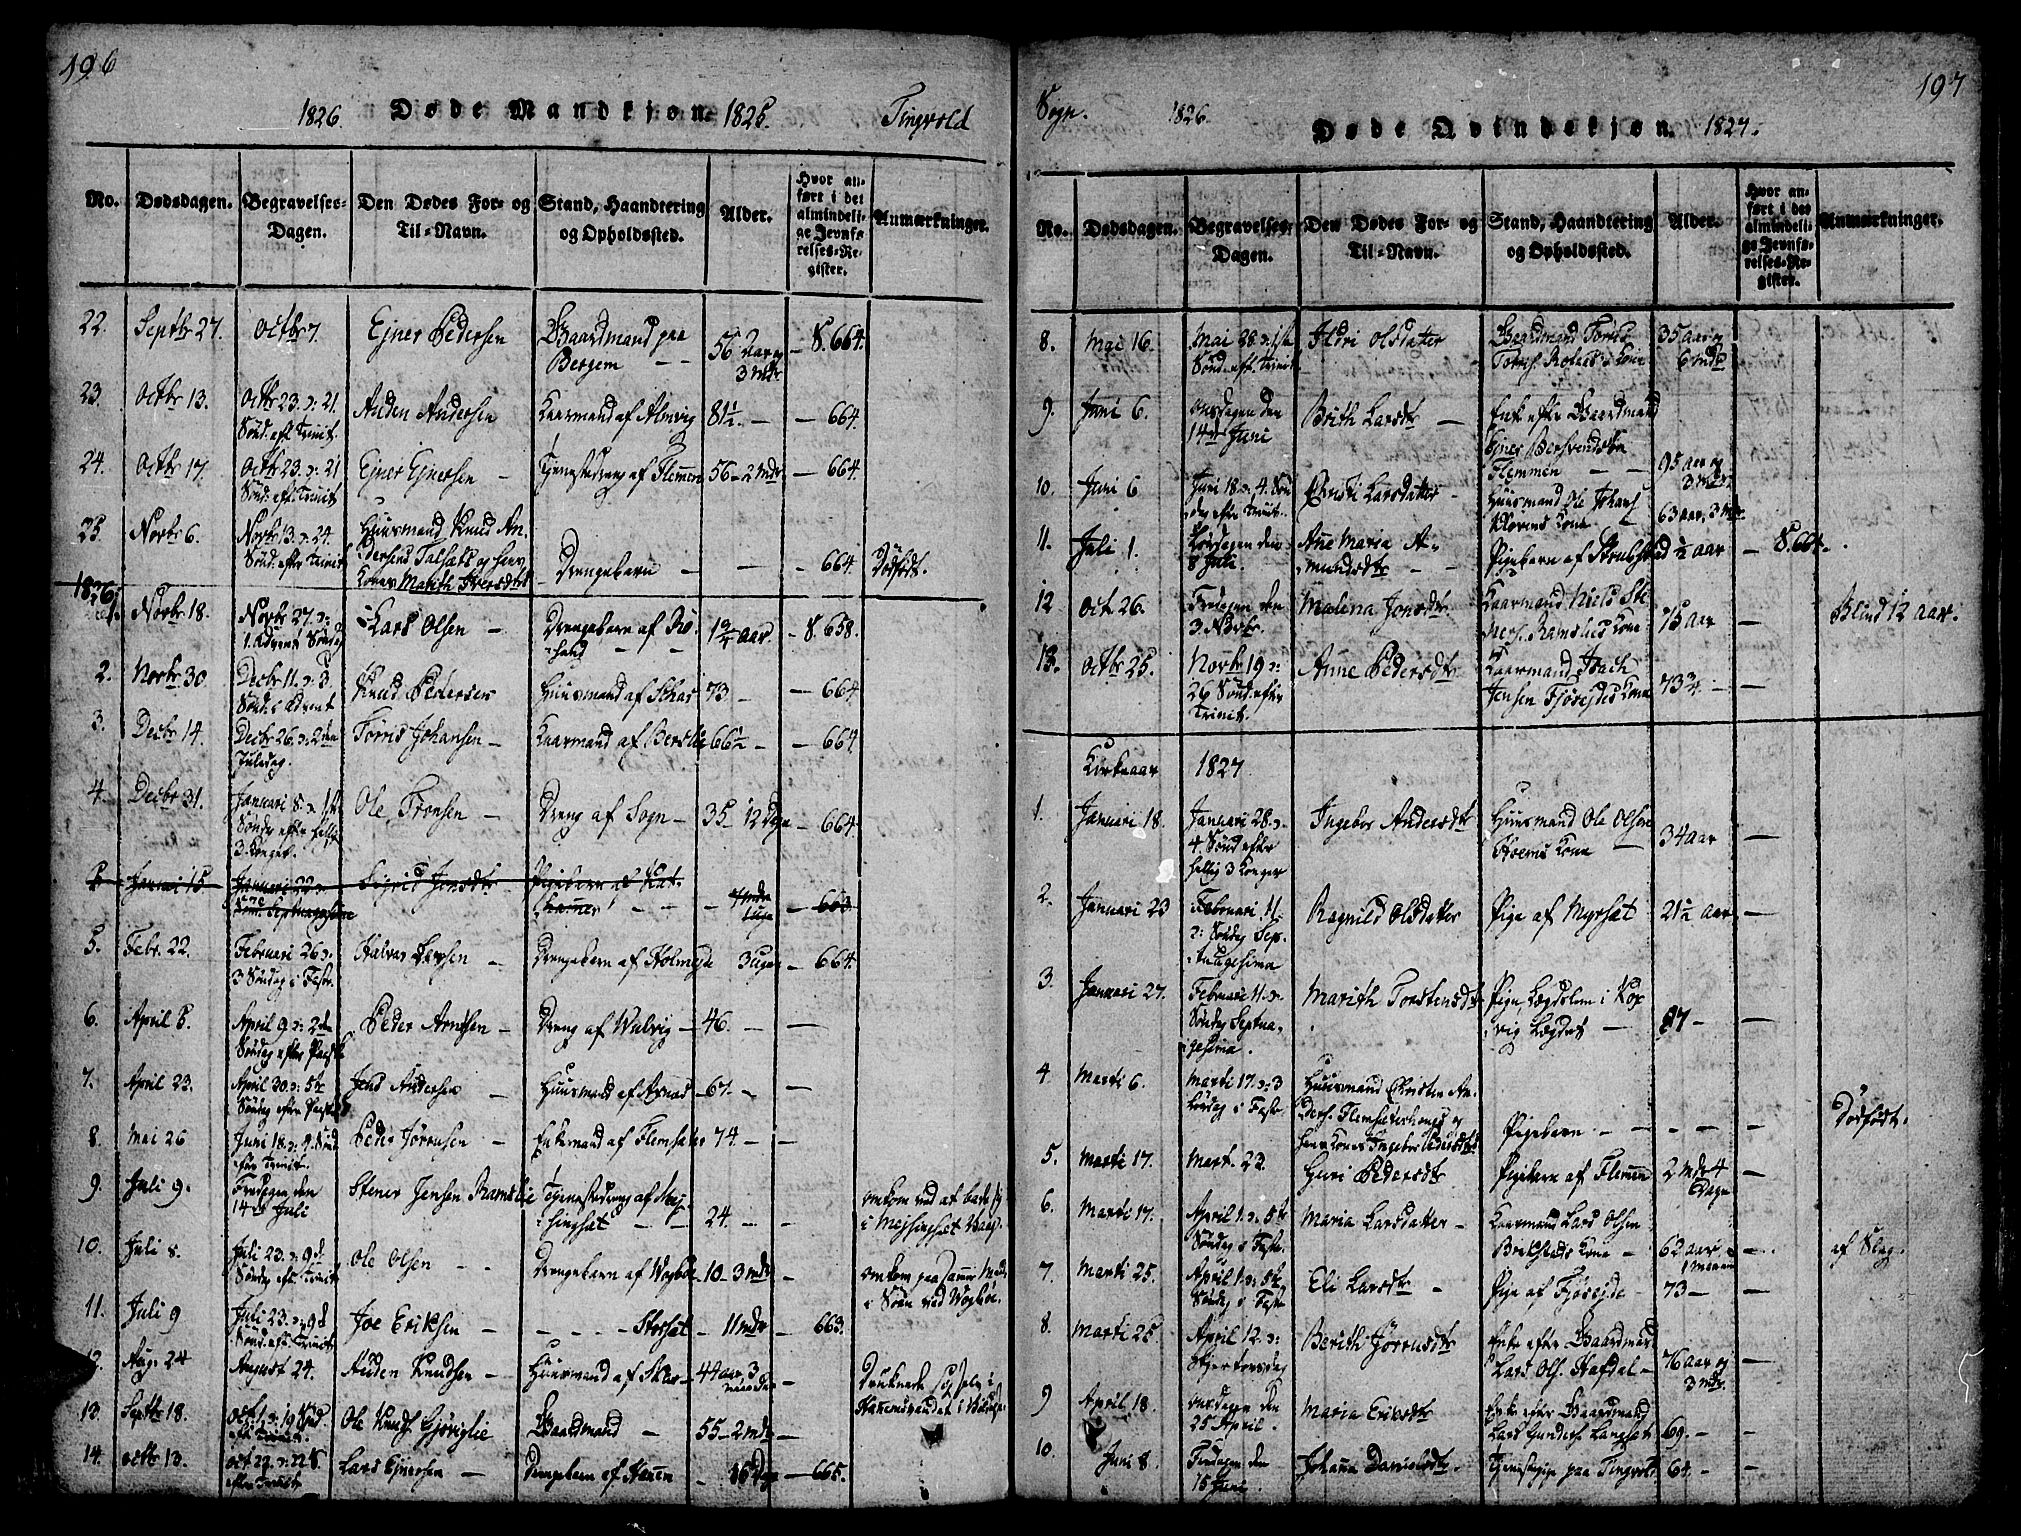 196
1826. Døde Mandkjøn. 1825. Tingvold
No. Dødsdagen. Begravelses-Dagen. Den Dødes For- og Til-Navn. Stand, Haandtering og Opholdssted. Alder. Hvor anført i det almindelige Jevnførelses-Register. Anmærkninger.
22. Septbr 27. Octbr 7. Ejner Pedersen Gaardmand paa Bergem 56 Aar og 3 Mdr 8. 664.
23. Octbr 13. Octbr 23. ɔ: 21. Sønd. eft Trinit. Anden Andersen Kaarmand af Almvig 81½ 664.
24. Octbr 17. Octbr 23. ɔ: 21 Sønd. eft Trinit Ejner Ejnersen Tjenestedreng af Flemmen 56 – 2 Mdr 664.
25. Novbr 6. Novbr 13. ɔ: 24. Sønd. efter Trinit Huusmand Knud Andersens Talsæts og hans Kones Marith Iversdtr Drengebarn 664. Dødfødt.
1826.
1. Novbr 18. Novbr 27. ɔ: 1. Advent Søndag Lars Olsen Drengebarn af 8. 658.
2. Novbr 30. Decbr 11. ɔ: 3. Sønd. i Advent Knud Pedersen Huusmand af 73 664
3. Decbr 14. Decbr 26. ɔ: 2den Juledag. Torris Johansen Kaarmand af 66½ 664
4. Decbr 31. Januari 8. ɔ: 1ste Søndag efter hellig 3 Konger. Ole Tronsen Dreng af Sogn 35 – 12 Dage 664
5 Januari 15 Januari 22 ɔ: Septuagesima Sigrid Jonsdtr Pigebarn af 4 Mdr 1 Uge 663
5. Febr. 22. Februari 26 ɔ: 3 Søndag i Faste. Halvor Larsen Drengebarn af Holmejde 3 Uger 664.
6. April 5. April 9 ɔ: 2den Søndag efter Paaske Peder Arntsen Dreng af Walvig 46.
7. April 23. April 30 ɔ: 5te Søndag efter Paaske Jens Andersen Huusmand af Aarnes 67.
8. Mai 26 Juni 18. ɔ: Sønd efter Trinit. Peder Jørensen Enkemand af Flemsæter 74
9. Juli 9. Fredagen den 14de Juli Stener Jensen Ramslie Tjenestedreng af Mejsingsæt 24. omkom ved at bade sig i Mejsingsæt Vaag
10. Juli 8. Juli 23. ɔ: 9d Søndag eft Trinit Ole Olsen Drengebarn af Wogbøe 10 – 3 Mdr omkom paa samme Maade i Søen ved Wogbøe.
11. Juli 9 Juli 23. ɔ: 9d Sønd. eft. Trinit Joe Eriksen Storsæt 11 Mdr 663.
12. Aug. 24 August 24. Anden Knudsen Huusmand af 44 Aar, 3 Maaneder Druknede
13. Septbr 18. Oct. 1. ɔ: 19 Sønd eft Trinit. Ole Knuds. Gjøviglie Gaardmand 55 – 2 Mdr
14. Octbr 13. Oct 22. ɔ: 22 S. efter Trinit Lars Ejnersen Drengebarn af 16 Dage 665.
197
Sogn. 1826 Døde Qvindekjøn. 1827.
No. Dødsdagen. Begravelses-Dagen. Den Dødes For- og Til-Navn. Stand, Haandtering og Opholdssted. Alder. Hvor anført i det almindelige Jevnførelses-Register. Anmærkninger.
8. Mai 16. Mai 28. ɔ: 1ste Sønd. eft. Trinit. Ildri Olsdatter Gaardmand Torris Kone 35 Aar og 6 Mdr
9. Juni 6. Onsdagen den 14de Juni Brith Larsdtr Enke efter Gaardmand Ejner Bersvendsen Flemmen 95 Aar og 3 Mdr.
10. Juni 6 Juni 18. ɔ: 4. Søndag efter Trinit. Larsdatter Huusmand Ole Johans. Kone 63 Aar, 3 Mdr
11. Juli 1. Lørdagen den 8 Juli Ane Maria Amundsdtr Pigebarn af ½ Aar 8. 664.
12 Oct 26. Fredagen den 3. Novbr. Malena Jonsdtr Kaarmand Niels Ramslies Kone 75 Aar Blind 12 Aar.
13. Octbr 25. Novbr 19 ɔ: 26 Sønd. efter Trinit. Anne Pedersdtr Kaarmand Jensen Fjøsejdes Kone 73¾
Kirkeaar 1827
1. Januari 18. Januari 28. ɔ: 4. Sønd efter hellig 3 Konger Ingebor Andersdtr Huusmand Ole Olsen Kone 34 Aar
2. Januari 23 Februari 11. ɔ: Søndag Septuagesima Ragnild Olsdatter Pige af Myrsæt 21½ Aar
3. Januari 27. Februari 11. ɔ: Søndag Septuagesima. Marith Torstensdtr Pige Lægdslem i 87
4. Marti 6. Marti 17. ɔ: 3 Lørdag i Faste. Huusmand Christen Anders. Flemsæter og hans Kones Ingebor Pedersdtr Pigebarn Dødfødt.
5. Marti 17. Mart. 23. Guri Pedersdtr Pigebarn af Flemmen 2 Mdr 4 Dage
6. Marti 17. April 1. ɔ: 5te Søndag i Faste. Maria Larsdatter Kaarmand Lars Olsen Kone 62 Aar 1 Maaned af Slag.
7. Marti 25. April 1. ɔ: 5te Søndag i Faste Eli Larsdtr Pige af Fjøsejde 73
8. Marti 25 April 12. ɔ: Skjertorsdag Berith Jørensdtr Enke efter Gaardmand Lars Ols. 76 Aar og 3 Mdr.
9 April 18. Onsdagen den 25 April. Maria Eriksdtr Enke efter Gaardmand Lars Gunders. Langsæt 69.
10. Juni 8. Fredagen den 15 Juni. Johanna Danielsdtr. Tjenestepige paa Tingvold 64.